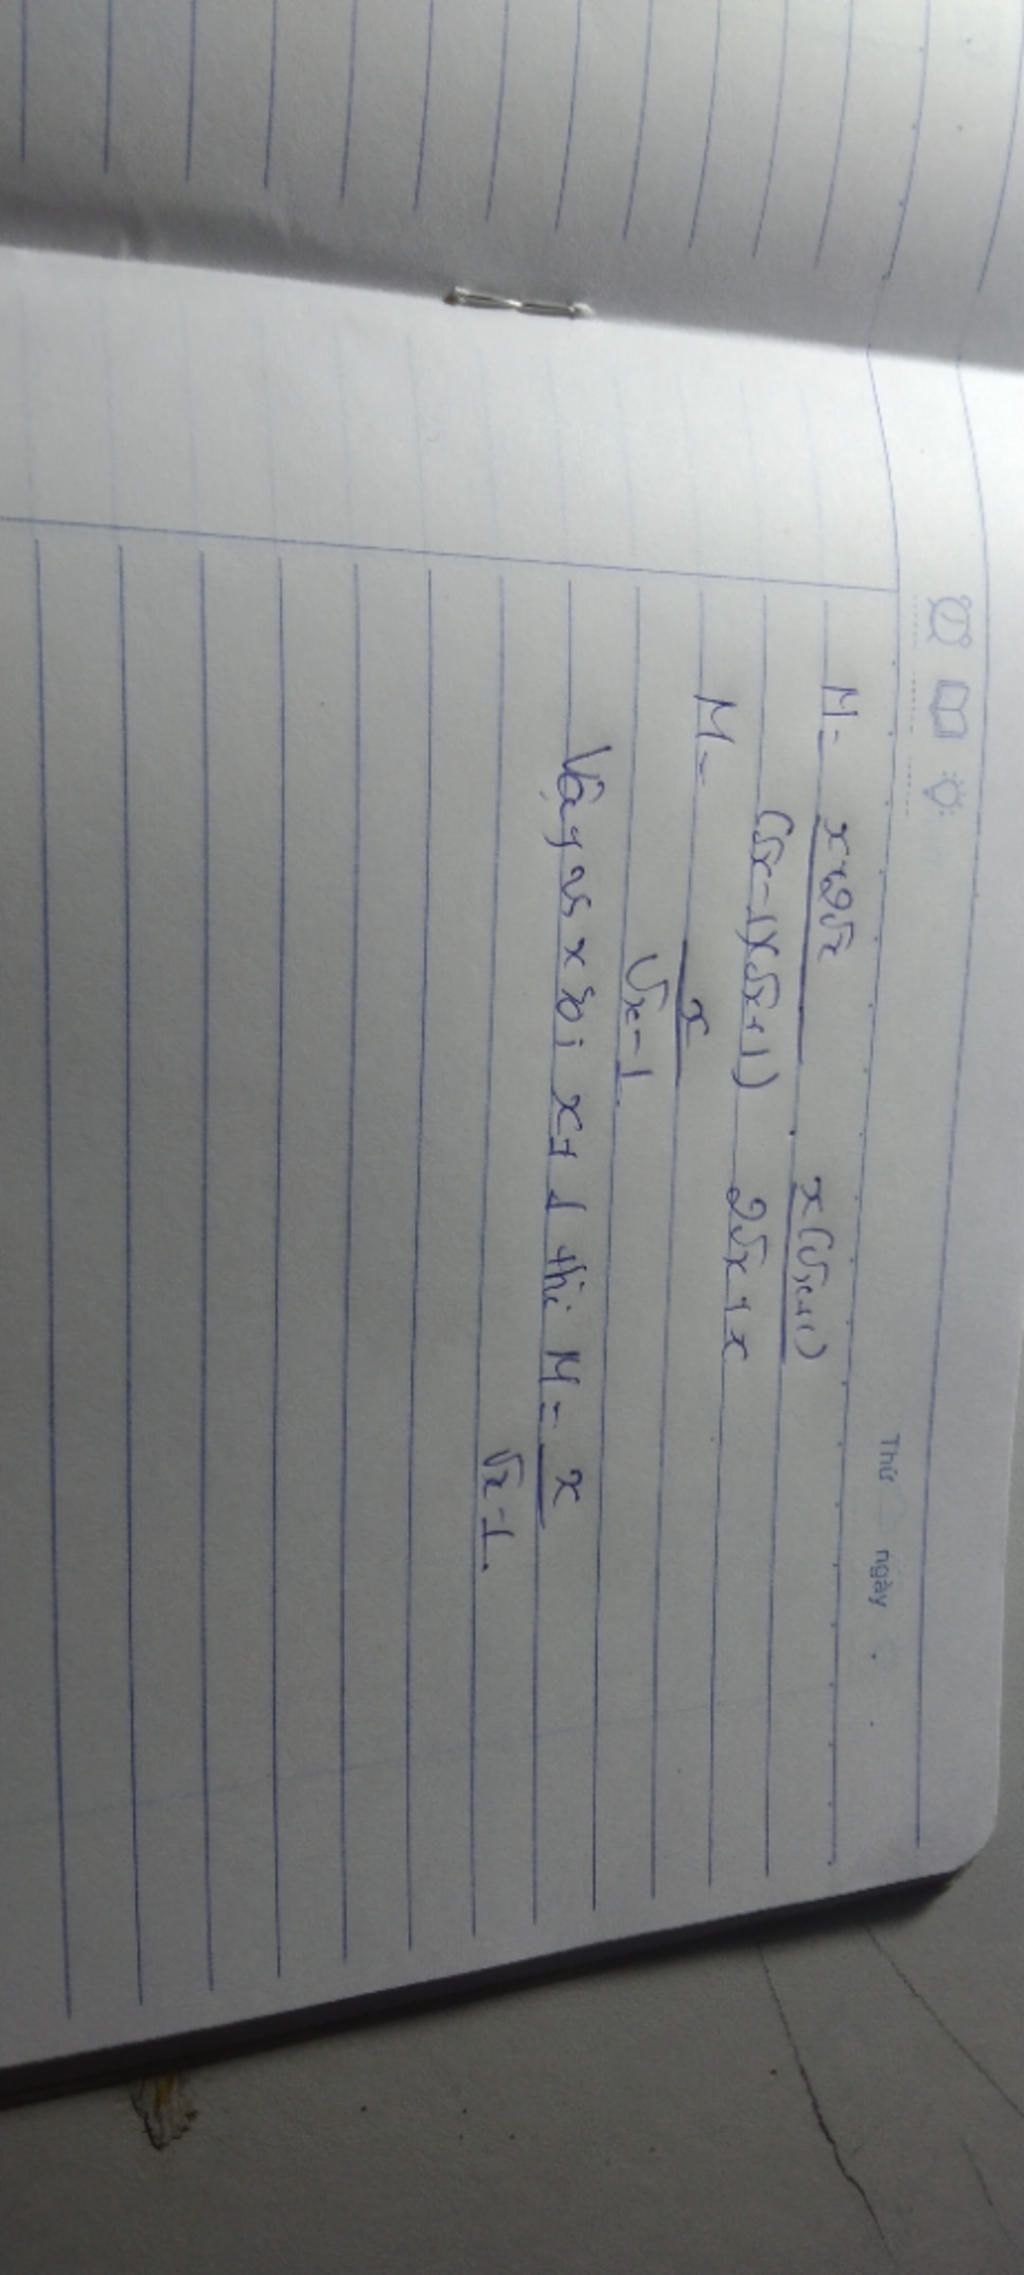 Thứ ngày
M = x+2√x / (√x-1)(√x+1) . x(√x+1) / 2√x+x
M = x / √x-1.
Vậy vs x>0; x≠1 thì M = x / √x-1.